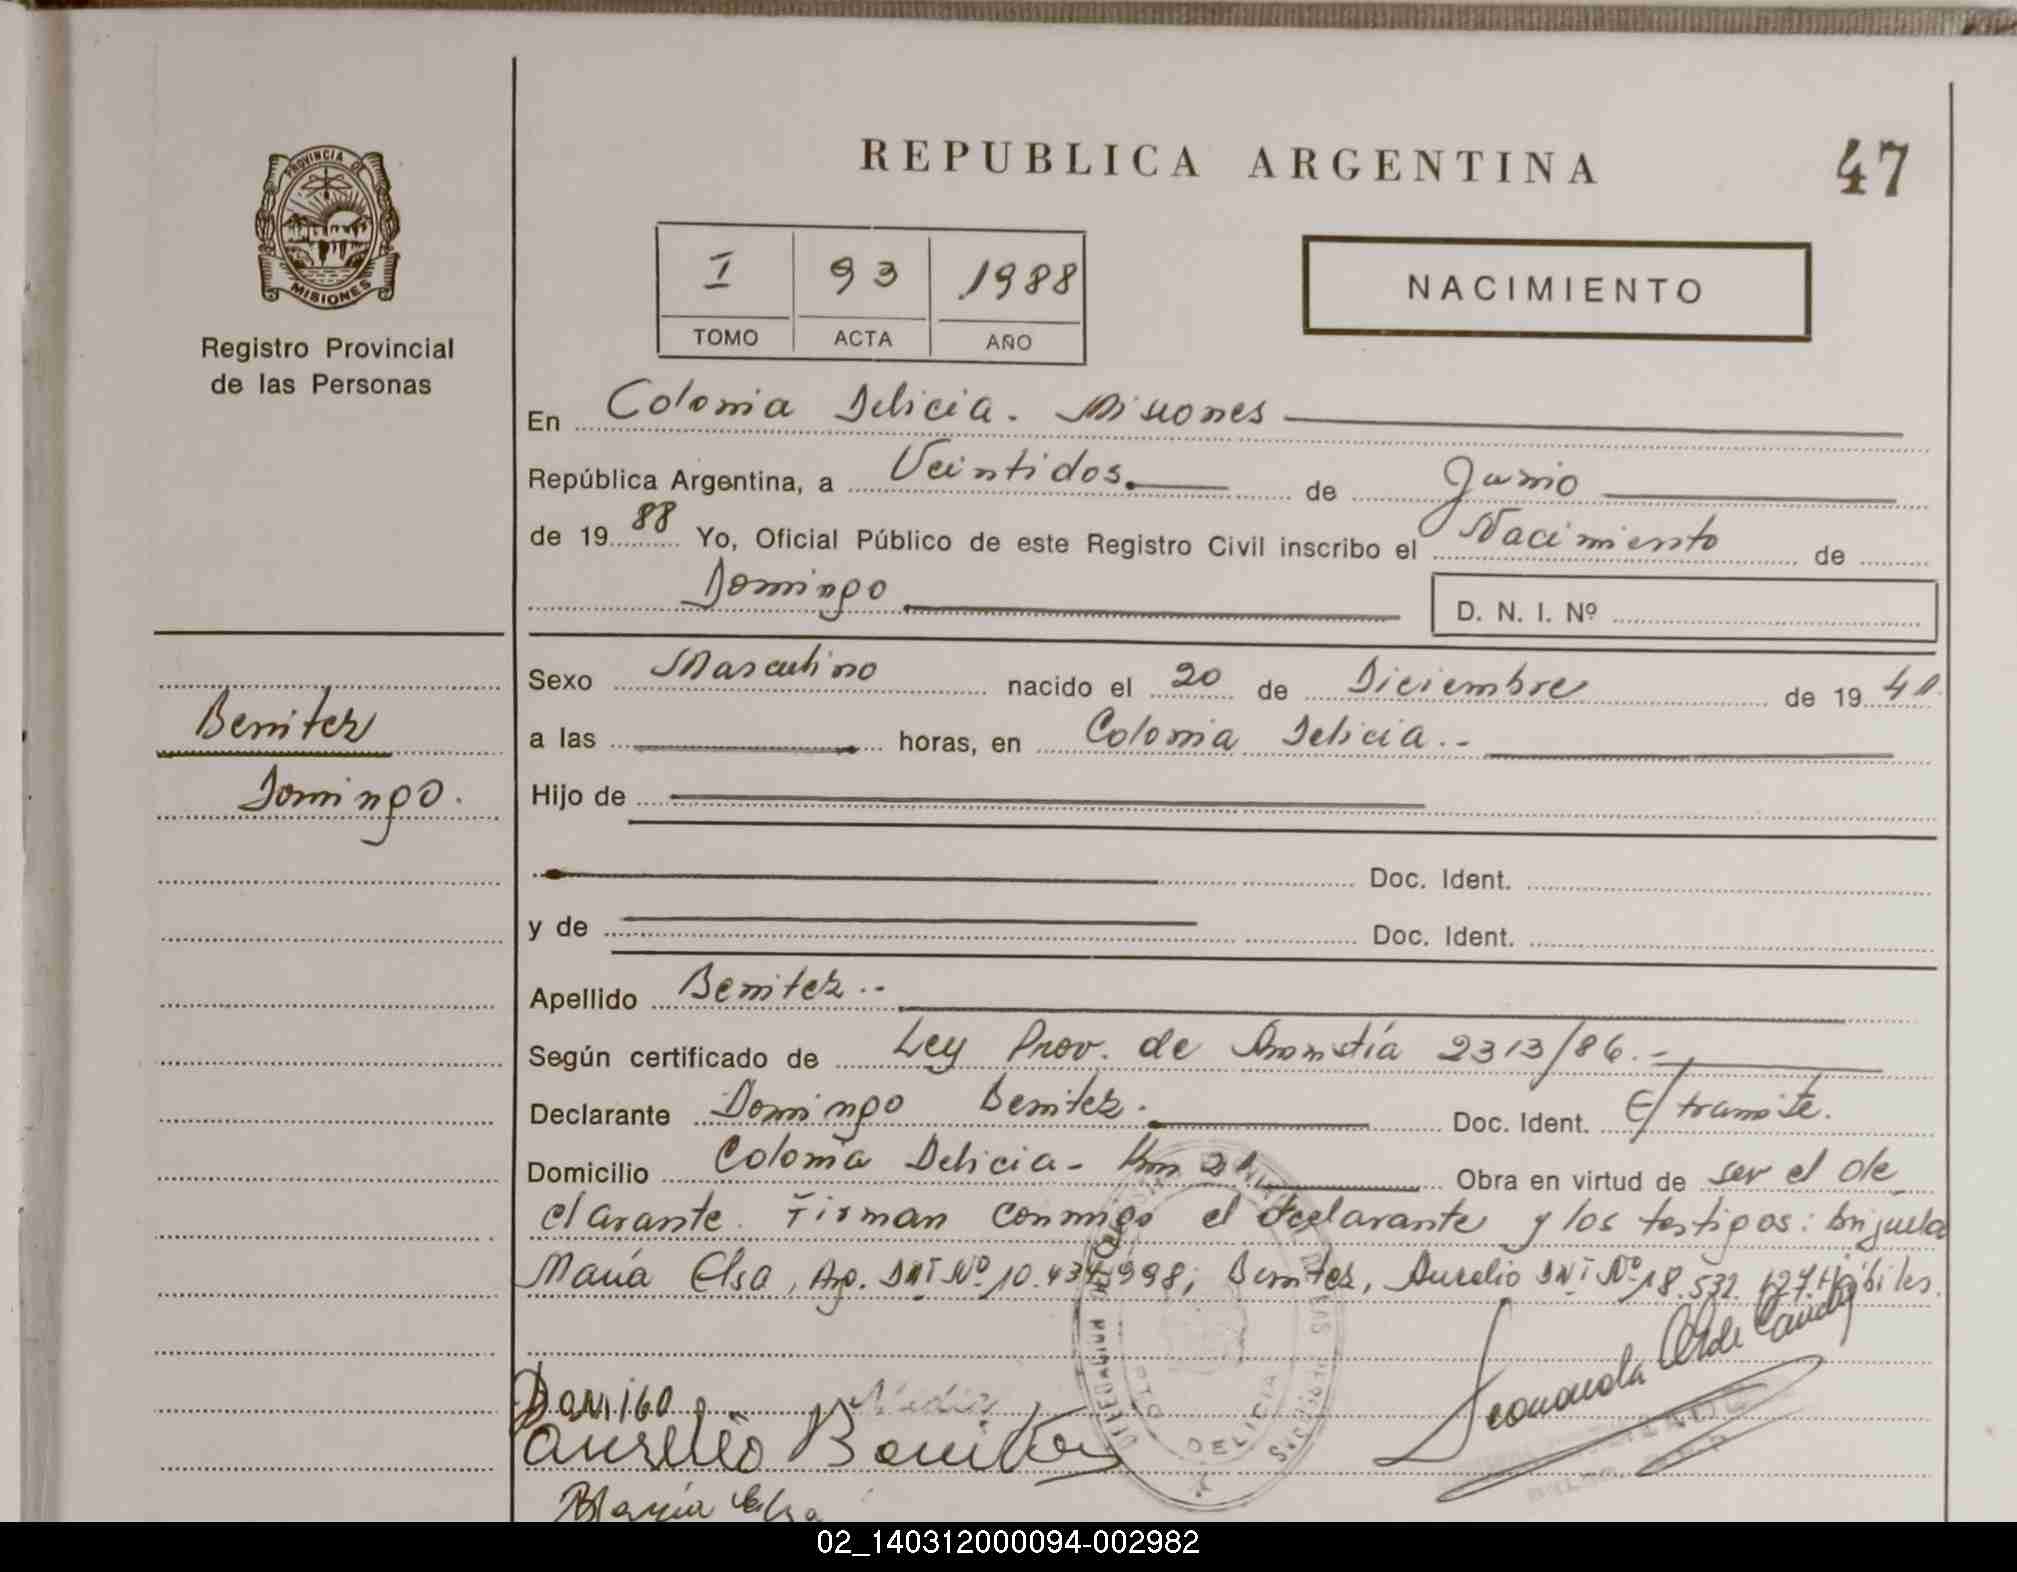 REPUBLICA ARGENTINA
47
PROVINCIA DE
MISIONES
Registro Provincial
de las Personas
I 93 1988
TOMO ACTA AÑO
NACIMIENTO
En Colonia Delicia. Misiones
República Argentina, a Veintidos de Junio
de 1988 Yo, Oficial Público de este Registro Civil inscribo el Nacimiento de
Domingo
D. N. I. Nº
Benitez
Domingo.
Sexo Masculino nacido el 20 de Diciembre de 19
a las horas, en Colonia Delicia.-
Hijo de
Doc. Ident.
y de Doc. Ident.
Apellido Benitez..
Según certificado de Ley Prov. de Amnistía 2313/86.-
Declarante Domingo Benitez. Doc. Ident. E/tramite.
Domicilio Colonia Delicia- Km 21 Obra en virtud de ser el de
clarante. Firman conmigo el declarante y los testigos:
María Elsa, Arg. DNI Nº 10.434.998; Benitez, Aurelio DNI Nº 18.532.127. Hábiles.
DELICIA
Aurelio Benitez
María Elsa
02_140312000094-002982